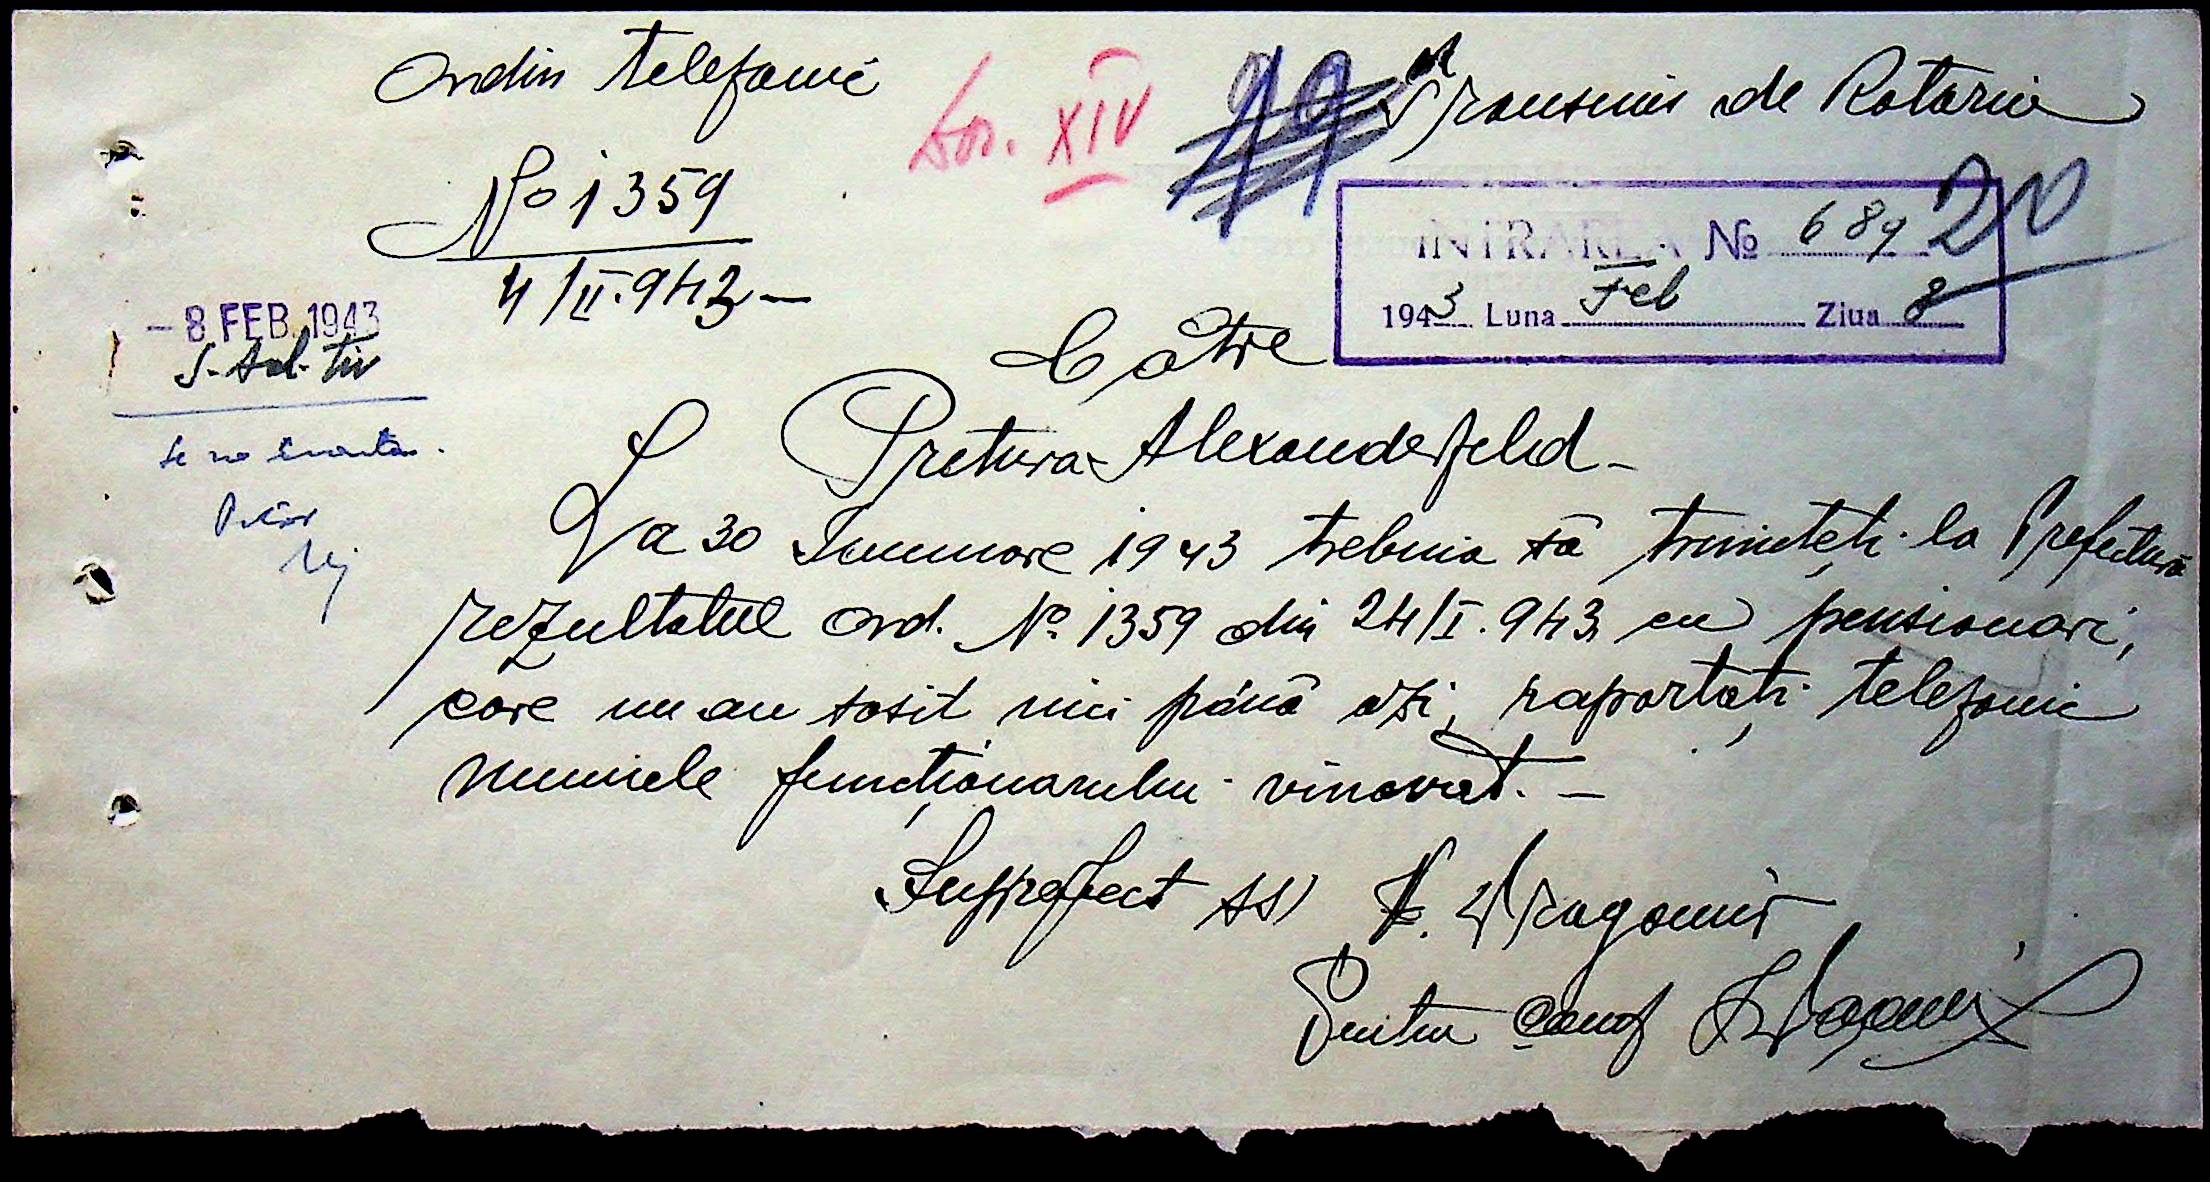 Ordin telefonic
Transmis de Rotariu
Dos. XIV
99
No 1359
4/II.943 —
INTRAREA № 689
20
1943 Luna Feb Ziua 8
— 8 FEB. 1943
S. Ad-tiv
Către
Pretura Alexanderfeld —
La 30 Ianuarie 1943 trebuia să trimiteți la Prefectură
rezultatul ord. No. 1359 din 24/I.943 cu pensionari,
care nu au sosit nici până azi, raportați telefonic
numele funcționarului vinovat. —
Suprefect ss) Dragomir
Pentru conf